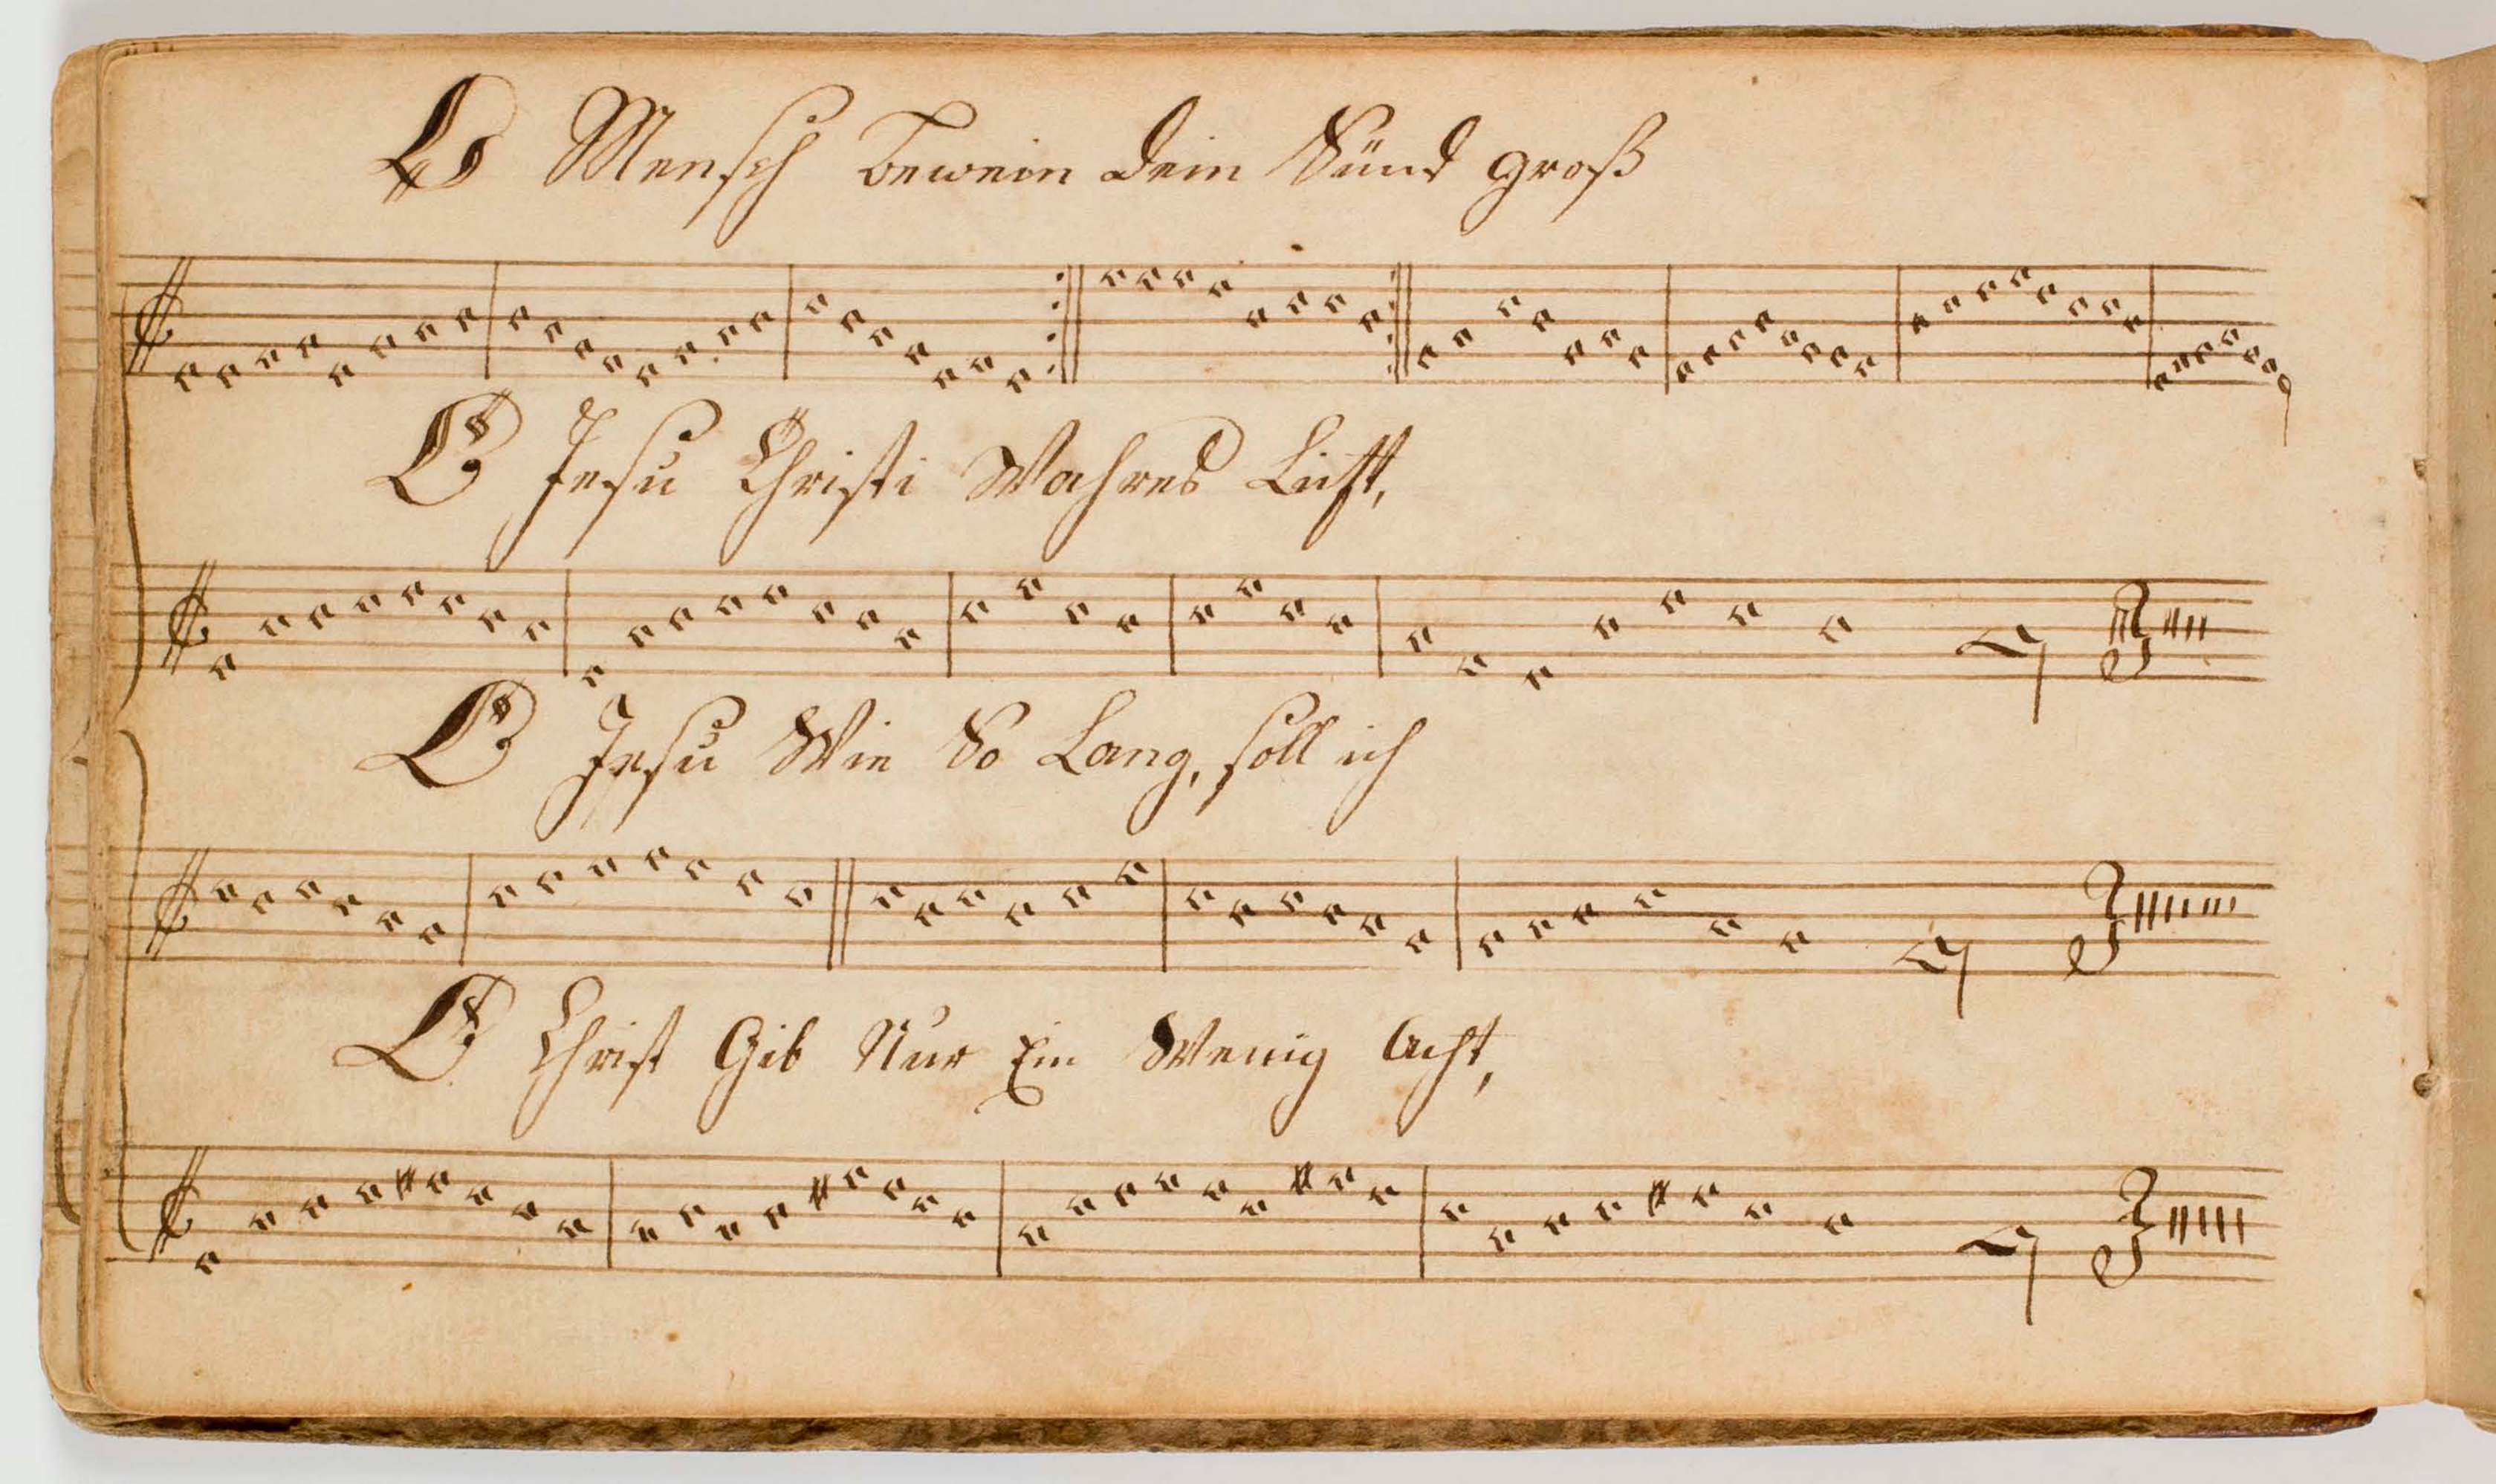 O Mensch bewein dein Sünd groß
O Jesu Christi Wahres Licht,
O Jesu Wie So Lang, soll ich
O Christ Gib Nur Ein Wenig Acht,